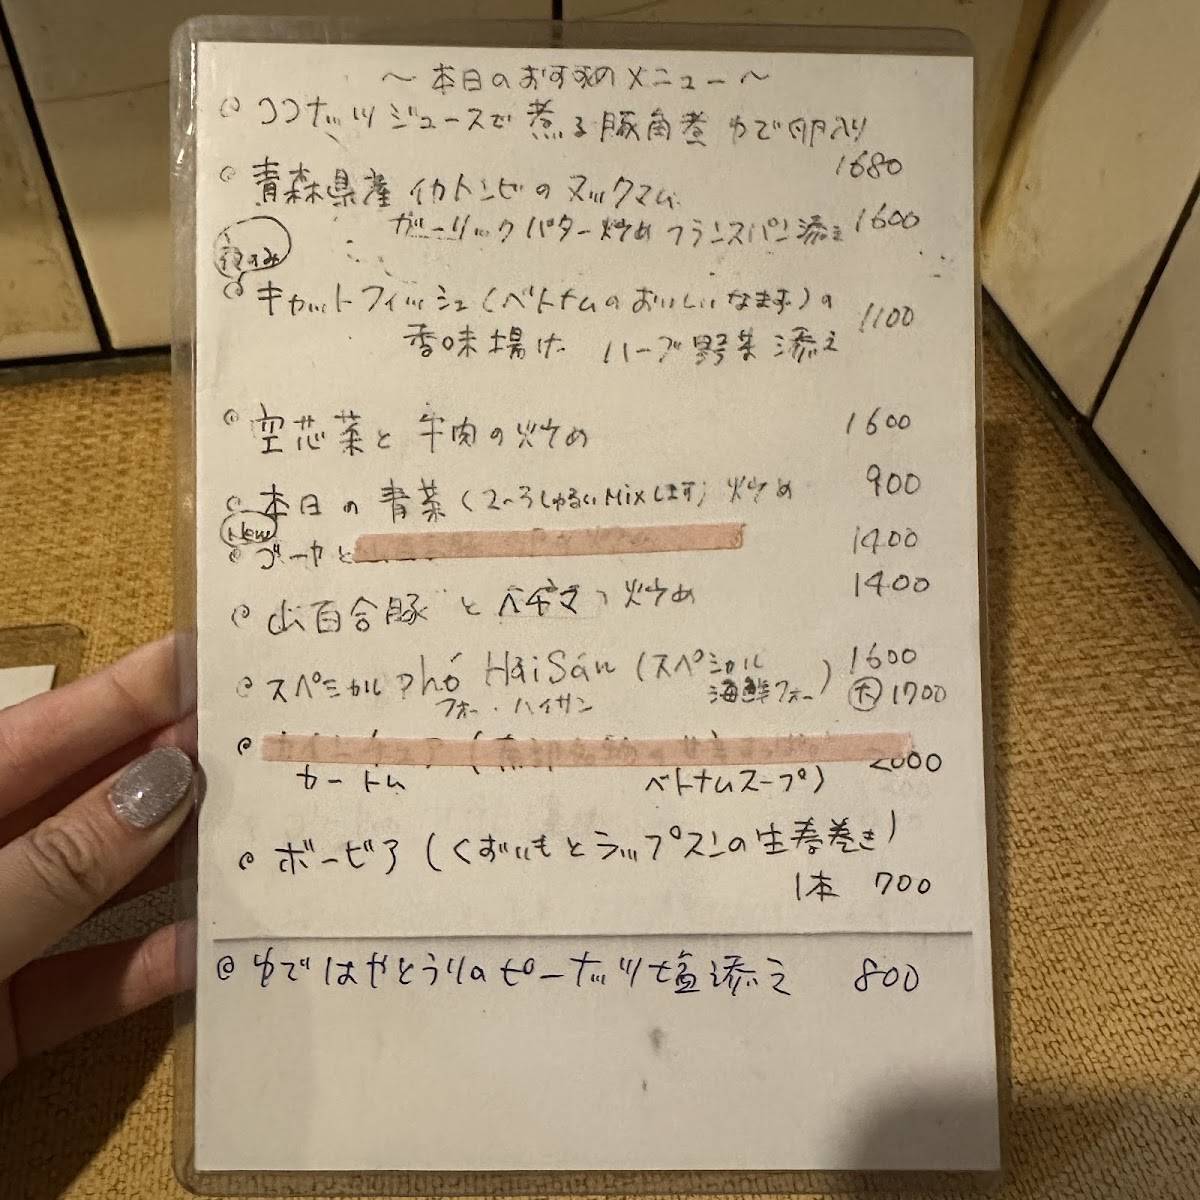 ～本日のおすすめメニュー～
ココナッツジュースで煮る豚角煮 ゆで卵入り
1680
青森県産イカトンビのヌックマム
ガーリックバター炒め フランスパン添え 1600
夜のみ
キャットフィッシュ(ベトナムのおいしいなまず)の
香味揚げ ハーブ野菜添え 1100
空芯菜と牛肉の炒め 1600
本日の青菜(2〜3しゅるいMixします)炒め 900
New
ゴーヤと 1400
山百合豚とヘチマの炒め 1400
スペシャルPhở Hải Sản (スペシャル 海鮮フォー) 1600
フォー・ハイサン 大 1700
2000
カートム ベトナムスープ)
ボービア(くずいもとラップスンの生春巻き)
1本 700
ゆではやとうりのピーナッツ塩添え 800